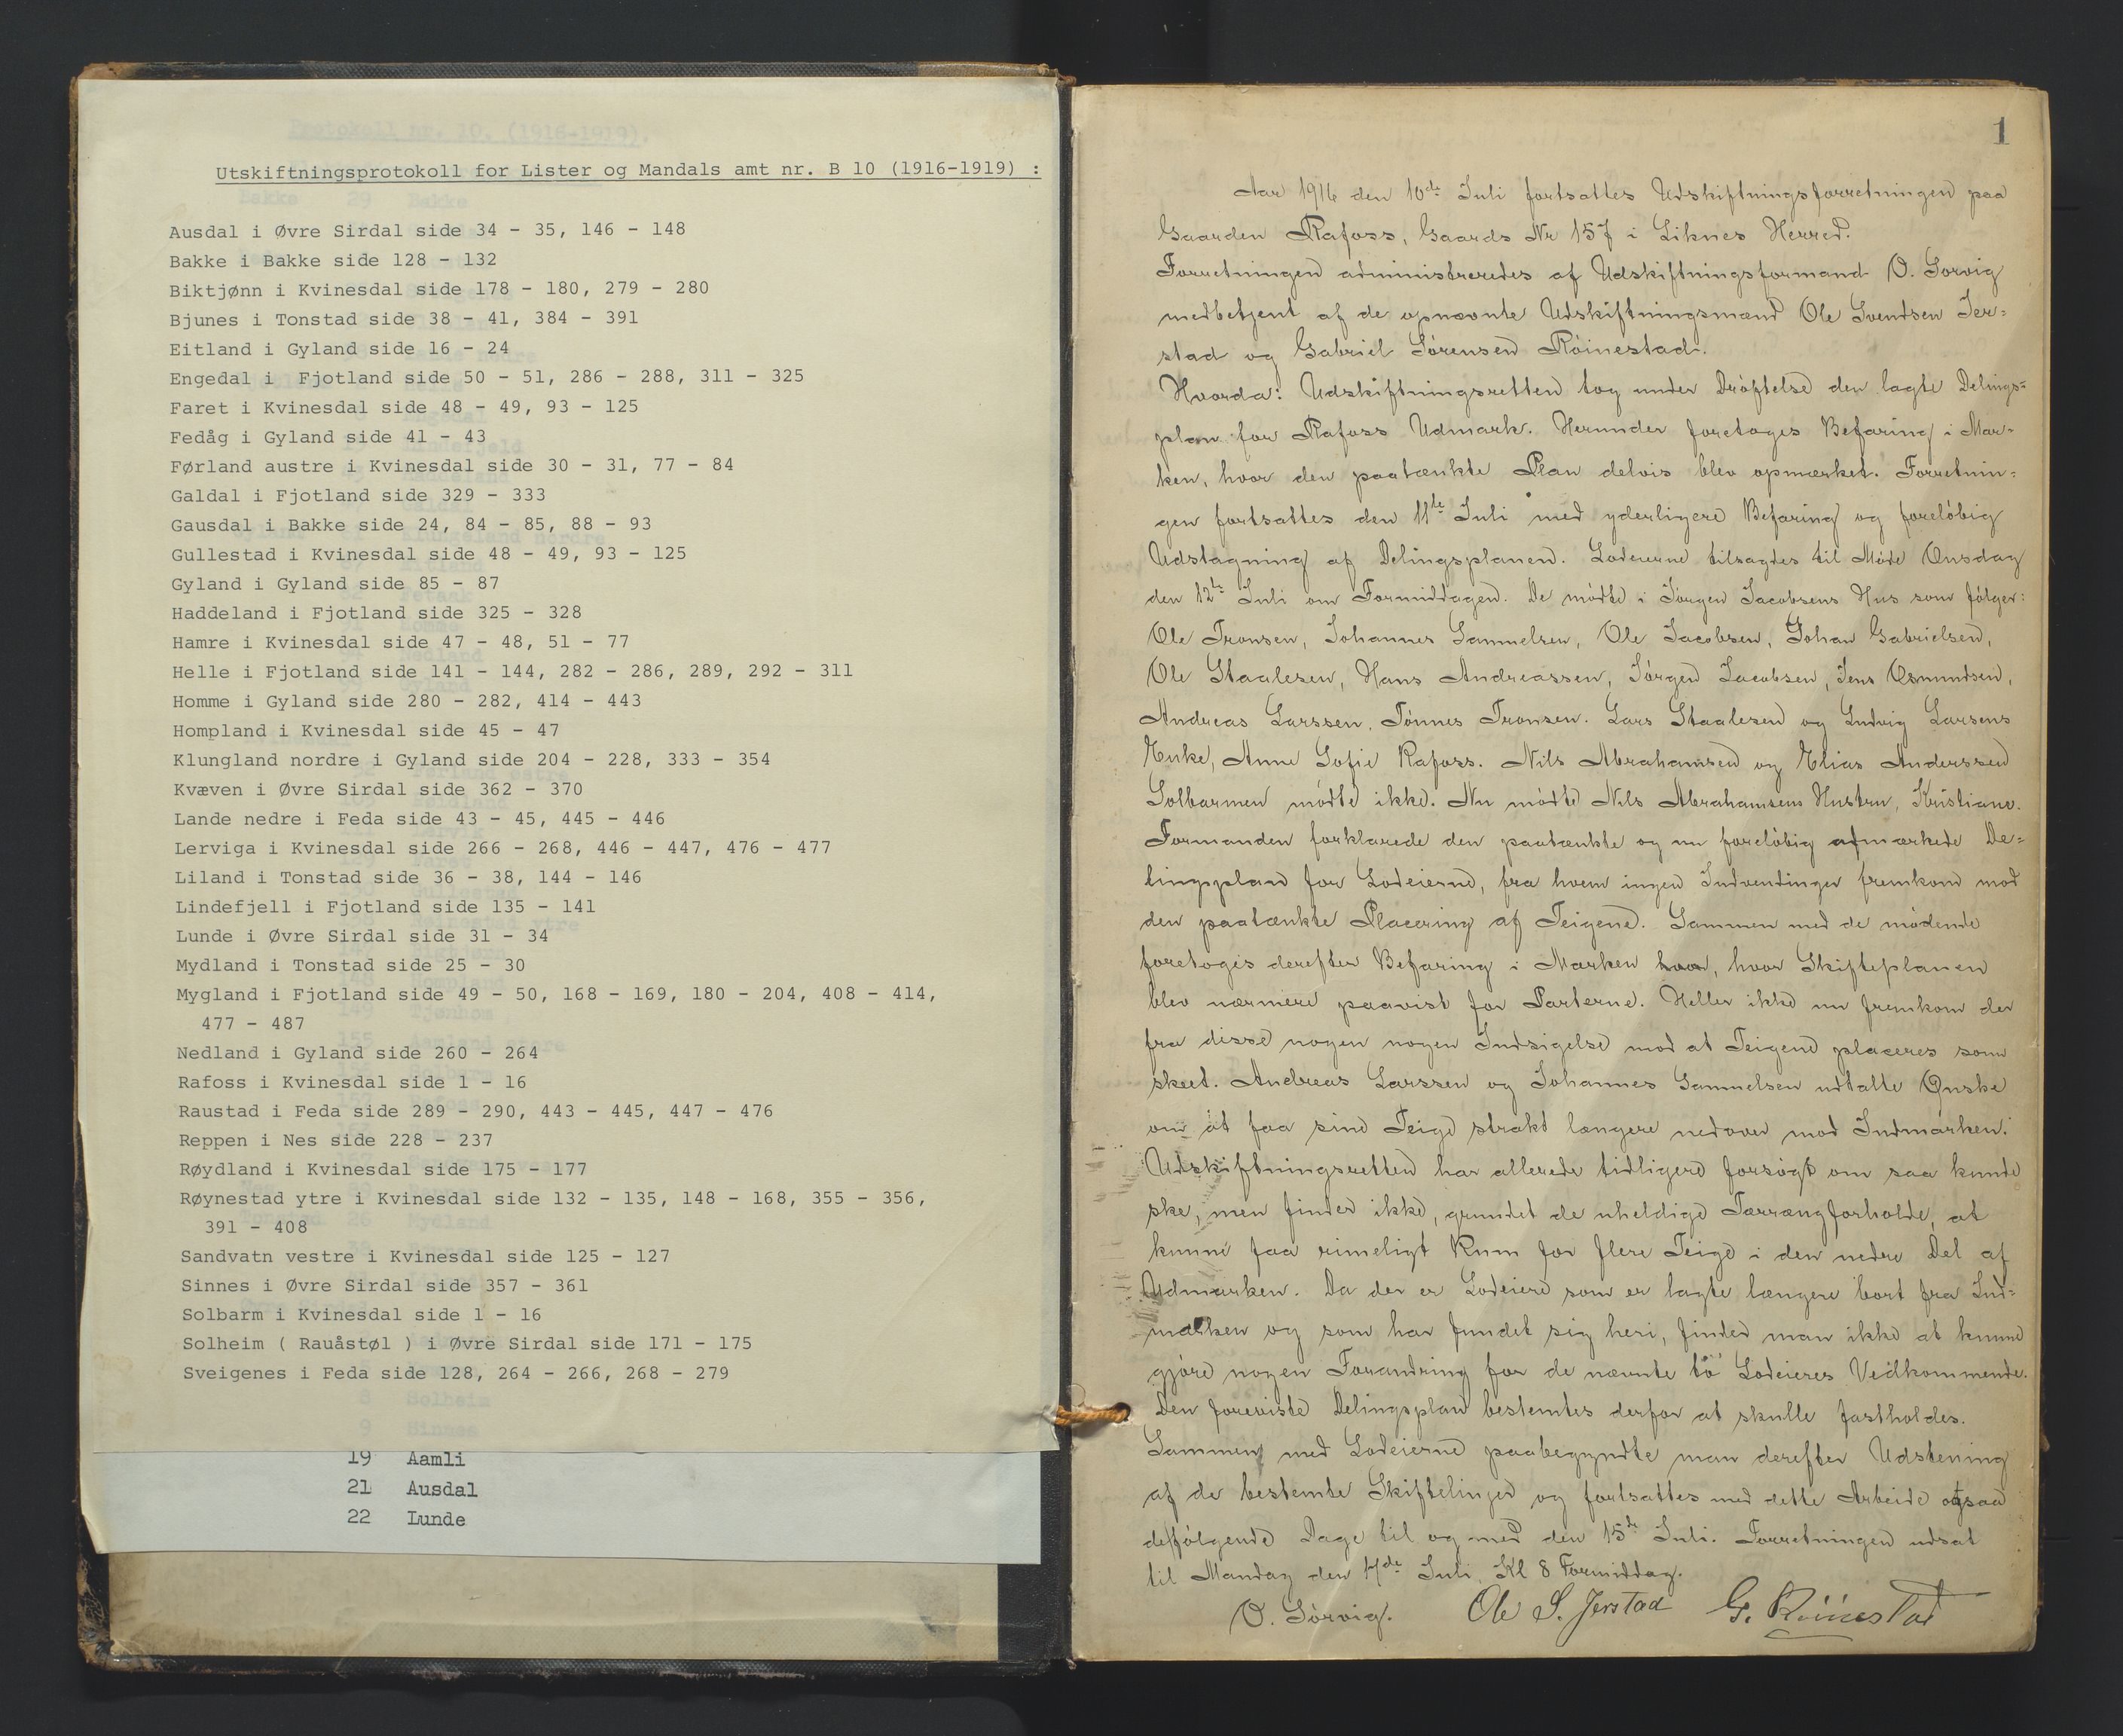 Utskiftningsprotokoll for Lister og Mandals amt nr. B 10 (1916-1919) :
Ausdal i Øvre Sirdal side 34 - 35, 146 - 148
Bakke i Bakke side 128 - 132
Biktjønn i Kvinesdal side 178 - 180, 279 - 280
Bjunes i Tonstad side 38 - 41, 384 - 391
Eitland i Gyland side 16 - 24
Engedal i  Fjotland side 50 - 51, 286 - 288, 311 - 325
Faret i Kvinesdal side 48 - 49, 93 - 125
Fedåg i Gyland side 41 - 43
Førland austre i Kvinesdal side 30 - 31, 77 - 84
Galdal i Fjotland side 329 - 333
Gausdal i Bakke side 24, 84 - 85, 88 - 93
Gullestad i Kvinesdal side 48 - 49, 93 - 125
Gyland i Gyland side 85 - 87
Haddeland i Fjotland side 325 - 328
Hamre i Kvinesdal side 47 - 48, 51 - 77
Helle i Fjotland side 141 - 144, 282 - 286, 289, 292 - 311
Homme i Gyland side 280 - 282, 414 - 443
Hompland i Kvinesdal side 45 - 47
Klungland nordre i Gyland side 204 - 228, 333 - 354
Kvæven i Øvre Sirdal side 362 - 370
Lande nedre i Feda side 43 - 45, 445 - 446
Lerviga i Kvinesdal side 266 - 268, 446 - 447, 476 - 477
Liland i Tonstad side 36 - 38, 144 - 146
Lindefjell i Fjotland side 135 - 141
Lunde i Øvre Sirdal side 31 - 34
Mydland i Tonstad side 25 - 30
Mygland i Fjotland side 49 - 50, 168 - 169, 180 - 204, 408 - 414,
477 - 487
Nedland i Gyland side 260 - 264
Rafoss i Kvinesdal side 1 - 16
Raustad i Feda side 289 - 290, 443 - 445, 447 - 476
Reppen i Nes side 228 - 237
Røydland i Kvinesdal side 175 - 177
Røynestad ytre i Kvinesdal side 132 - 135, 148 - 168, 355 - 356,
391 - 408
Sandvatn vestre i Kvinesdal side 125 - 127
Sinnes i Øvre Sirdal side 357 - 361
Solbarm i Kvinesdal side 1 - 16
Solheim ( Rauåstøl ) i Øvre Sirdal side 171 - 175
Sveigenes i Feda side 128, 264 - 266, 268 - 279
19 Aamli
21 Ausdal
22 Lunde
1
Aar 1916 den 10de Juli fortsattes Udskiftningsforretningen paa
Gaarden Rafoss, Gaards Nr 157 i Liknes Herred.
Forretningen administreredes af Udskiftningsformand O. Sørvig
medbetjent af de opnævnte Udskiftningsmænd Ole Svendsen Jer=
stad og Gabriel Sørensen Röinestad.
Hvorda: Udskiftningsretten tog under Dröftelse den lagte Delings=
plan for Rafoss Udmark. Herunder foretoges Befaring i Mar=
ken, hvor den paatænkte Plan delvis blev opmærket. Forretnin=
gen fortsattes den 11te Juli med yderligere Befaring og foreløbig
Udstagning af Delingsplanen. Lodeierne tilsagdes til Møde Onsdag
den 12te Juli om Formiddagen. De mödte i Jørgen Jacobsens Hus som fölger:
Ole Tronsen, Johannes Samuelsen, Ole Jacobsen, Johan Gabrielsen,
Ole Staalesen, Hans Andreassen, Jörgen Jacobsen, Jens Osmundsen,
Andreas Larssen, Tönnes Tronsen. Lars Staalesen og Ludvig Larsens
Enke, Anne Sofie Rafoss. Nils Abrahamsen og Elias Anderssen
Solbarmen mödte ikke. Nu mödte Nils Abrahamsens Hustru, Kristiane.
Formanden forklarede den paatænkte og nu foreløbig afmærkede De=
lingsplan for Lodeierne, fra hvem ingen Indvendinger fremkom mod
den paatænkte Placering af Teigene. Sammen med de mödende
foretoges derefter Befaring i Marken hvor, hvor Skifteplanen
blev nærmere paavist for Parterne. Heller ikke nu fremkom der
fra disse nogen nogen Indsigelse mod at Teigene placeres som
skeet. Andreas Larssen og Johannes Samuelsen udtalte Ønske
om at faa sine Teige strakt længere nedover mod Indmarken.
Udskiftningsretten har allerede tidligere forsögt om saa kunde
ske, men finder ikke, grundet de uheldige Tærrængforholde, at
kunne faa rimeligt Rum for flere Teige i den nedre Del af
Udmarken. Da der er Lodeiere som er lagte længere bort fra Ind=
marken og som har fundet sig heri, finder man ikke at kunne
gjöre nogen Forandring for de nævnte to Lodeieres Vedkommende.
Den foreviste Delingsplan bestemtes derfor at skulle fastholdes.
Sammen med Lodeierne paabegyndte man derefter Udstening
af de bestemte Skiftelinjer og fortsattes med dette Arbeide ogsaa
de fölgende Dage til og med den 15de Juli. Forretningen udsat
til Mandag den 17de Juli Kl 8 Formiddag.
O. Sörvig. Ole S. Jerstad G. Röinestad